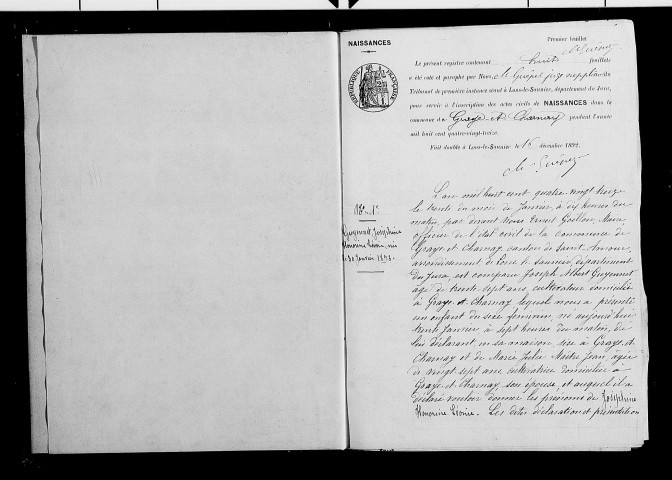 Premier feuillet
NAISSANCES
Le présent registre contenant huit feuillets
a été coté et paraphé par Nous, juge suppléant du
Tribunal de première instance séant à Lons-le-Saunier, département du Jura,
pour servir à l'inscription des actes civils de NAISSANCES dans la
commune de Graye-et-Charnay pendant l'année
mil huit cent quatre-vingt-treize.
Fait double à Lons-le-Saunier le 16 décembre 1892.
RÉPUBLIQUE FRANÇAISE
N° 1er
Guyennet, Joséphine
Honorine Léonie, née
le 30 Janvier 1893.
L'an mil huit cent quatre-vingt treize
le trente du mois de Janvier, à dix heures du
matin, par devant Nous Ernest Maire
officier de l'état civil de la commune de
Graye-et-Charnay, canton de Saint-Amour,
arrondissement de Lons-le-Saunier, département
du Jura, est comparu Joseph Albert Guyennet
âgé de trente-sept ans, cultivateur domicilié
à Graye-et-Charnay lequel nous a présenté
un enfant du sexe féminin, né aujourd'hui
trente Janvier, à sept heures du matin, de
lui déclarant, en sa maison sise à Graye-et-
Charnay et de Marie Julie Jean, âgée
de vingt-sept ans cultivatrice domiciliée à
Graye-et-Charnay son épouse, et auquel il a
déclaré vouloir donner les prénoms de Joséphine
Honorine Léonie. Les dites déclaration et présentation